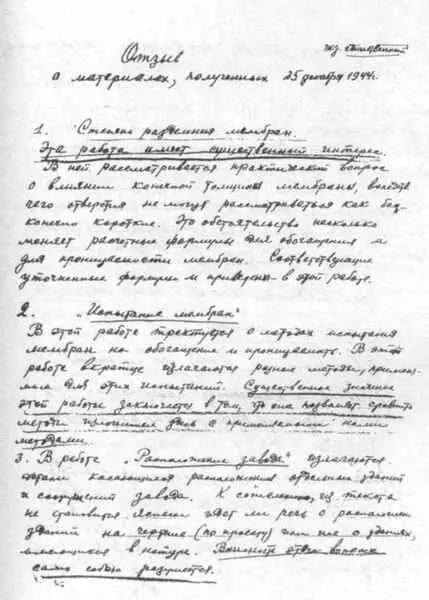 экз. единственный
Отзыв
о материалах, полученных 25 декабря 1944 г.
1. "Степень разъедания мембран.
Эта работа имеет существенный интерес.
В ней рассматривается практический вопрос
о влиянии конечной толщины мембраны, вследств.
чего отверстия не могут рассматриваться как бес-
конечно короткие. Это обстоятельство несколько
меняет расчетные формулы для обогащения и
для проницаемости мембран. Соответствующие
уточненные формулы и приведены в этой работе.
2. "Испытание мембран"
В этой работе трактуется о методах испытания
мембран на обогащение и проницаемость. В этой
работе вкратце излагаются разные методы, применя-
мые для этих испытаний. Существенное значение
этой работы заключается в том, что она позволяет сравнить
методы изложенные здесь с применяемыми нами
методами.
3. В работе "Расположение завода" излагаются
детали касающиеся расположения отдельных зданий
и сооружений завода. К сожалению, из текста
не становится ясным идет ли речь о расположении
зданий на чертеже (по проекту) или же о зданиях,
имеющихся в натуре. Важность ответа вопроса
само собою разумеется.